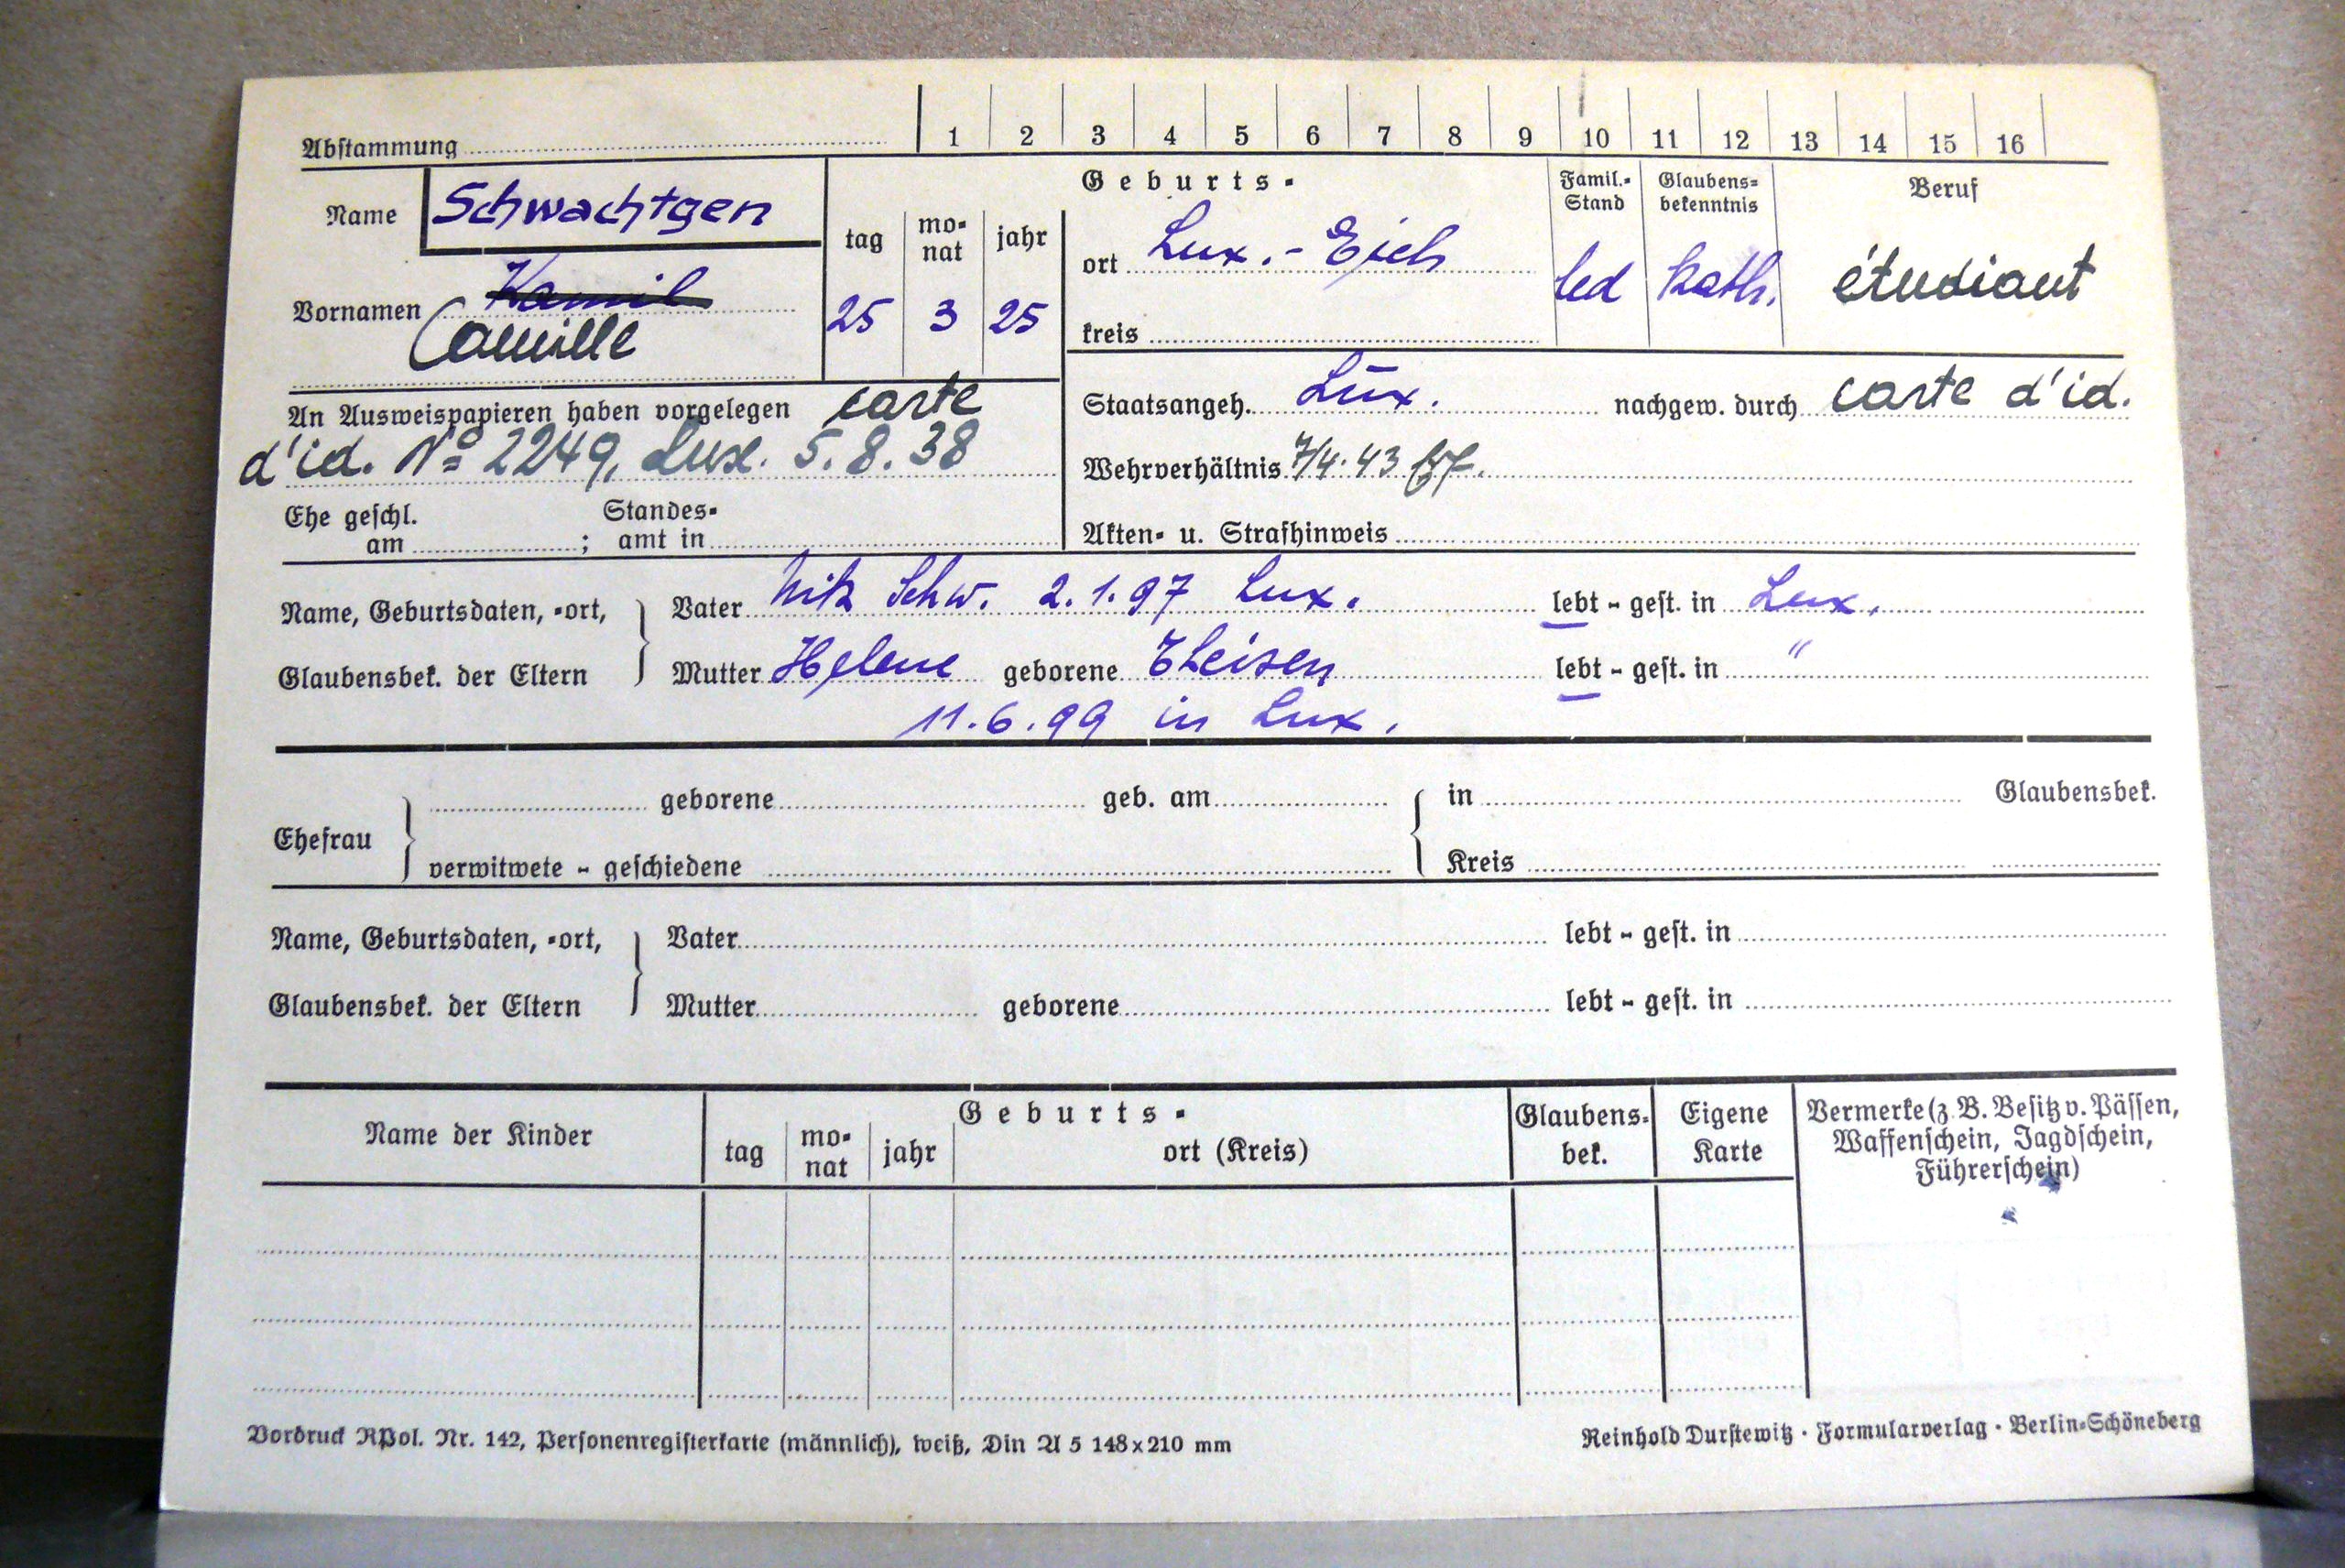 Abstammung 1 2 3 4 5 6 7 8 9 10 11 12 13 14 15 16
Name Schwachtgen
Vornamen Kamil
Camille
Geburts-
tag monat jahr
25 3 25
ort Lux.-Eich
kreis
Famil.-Stand
led
Glaubensbekenntnis
kath.
Beruf
étudiant
An Ausweispapieren haben vorgelegen carte
d'id. No 2249, Lux. 5.8.38
Staatsangeh. Lux. nachgew. durch carte d'id.
Wehrverhältnis 7/4.43
Ehe geschl. am ; Standesamt in
Akten- u. Strafhinweis
Name, Geburtsdaten, -ort, Vater Nik Schw. 2.1.97 Lux. lebt - gest. in Lux.
Glaubensbek. der Eltern Mutter Helene geborene Theisen lebt - gest. in "
11.6.99 in Lux.
Ehefrau geborene geb. am in Glaubensbek.
verwitwete - geschiedene Kreis
Name, Geburtsdaten, -ort, Vater lebt - gest. in
Glaubensbek. der Eltern Mutter geborene lebt - gest. in
Name der Kinder
Geburts-
tag monat jahr ort (Kreis)
Glaubensbek.
Eigene Karte
Vermerke (z. B. Besitz v. Pässen,
Waffenschein, Jagdschein,
Führerschein)
Vordruck RPol. Nr. 142, Personenregisterkarte (männlich), weiß, Din A 5 148x210 mm
Reinhold Durstewitz · Formularverlag · Berlin-Schöneberg